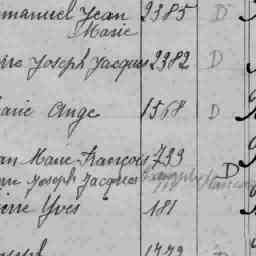 mmanuel Jean 2385 D
Marie
rre Joseph Jacques 2382 D
arie Ange 1568 D
an Marie François 733
rre Joseph Jacques D
ierre Yves 181